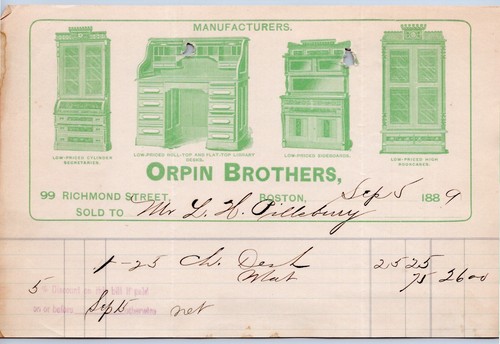 MANUFACTURERS.
LOW-PRICED CYLINDER SECRETARIES.
LOW-PRICED ROLL-TOP AND FLAT-TOP LIBRARY DESKS.
LOW-PRICED SIDEBOARDS.
LOW-PRICED HIGH BOOKCASES.
ORPIN BROTHERS,
99 RICHMOND STREET, BOSTON, Sep 5 1889
SOLD TO Mr L. H. Pillsbury
1-25 Ch. Desk 25 25
Mat 75 26 00
5 % Discount on bill if paid
on or before Sep 15 otherwise net